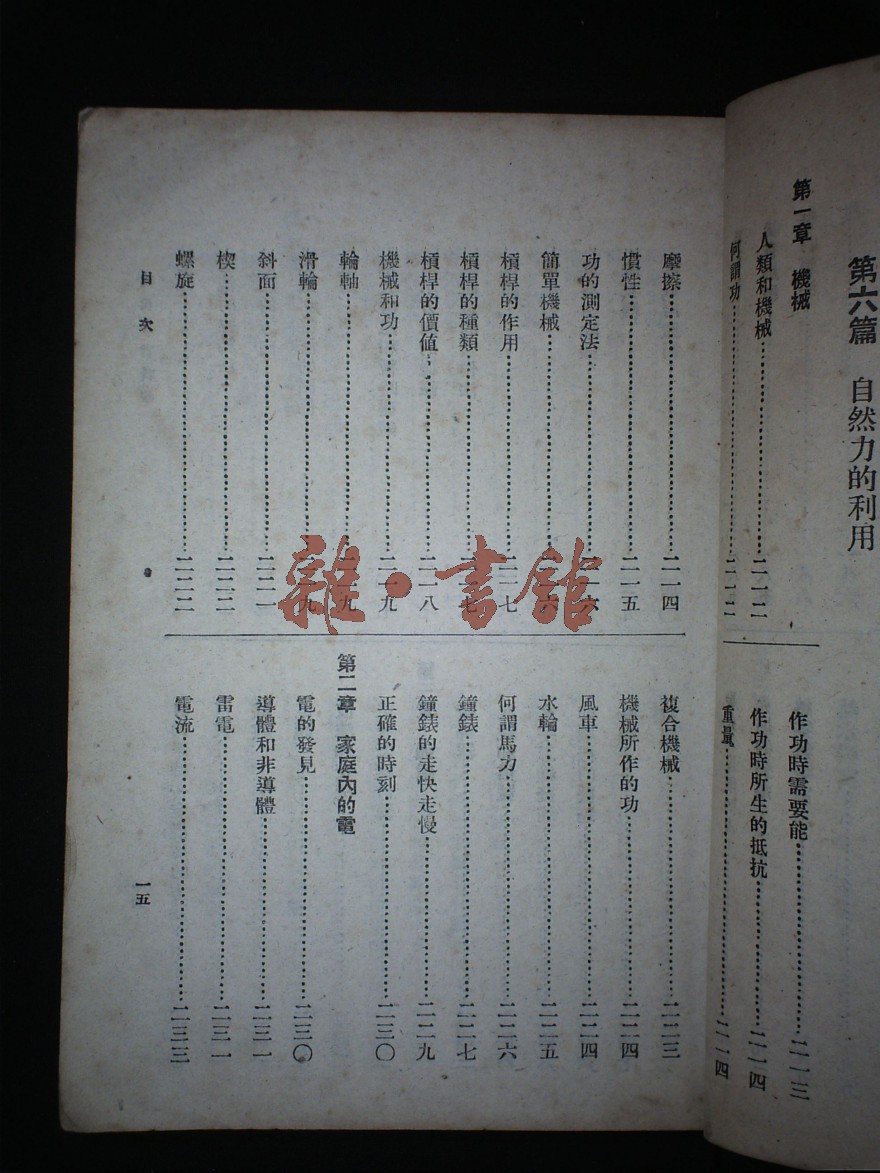 第六篇 自然力的利用
第一章 機械
人類和機械……二一二
何謂功……二一二
作功時需要能……二一三
作功時所生的抵抗……二一四
重量……二一四
摩擦……二一四
慣性……二一五
功的測定法……二一六
簡單機械……二一六
槓桿的作用……二一七
槓桿的種類……二一七
槓桿的價值……二一八
機械和功……二一九
輪軸……二一九
滑輪……二一九
斜面……二二一
楔……二二二
螺旋……二二二
複合機械……二二三
機械所作的功……二二四
風車……二二四
水輪……二二五
何謂馬力……二二六
鐘錶……二二七
鐘錶的走快走慢……二二九
正確的時刻……二三〇
第二章 家庭內的電
電的發見……二三〇
導體和非導體……二三一
雷電……二三一
電流……二三三
目次
一五
雜·書館